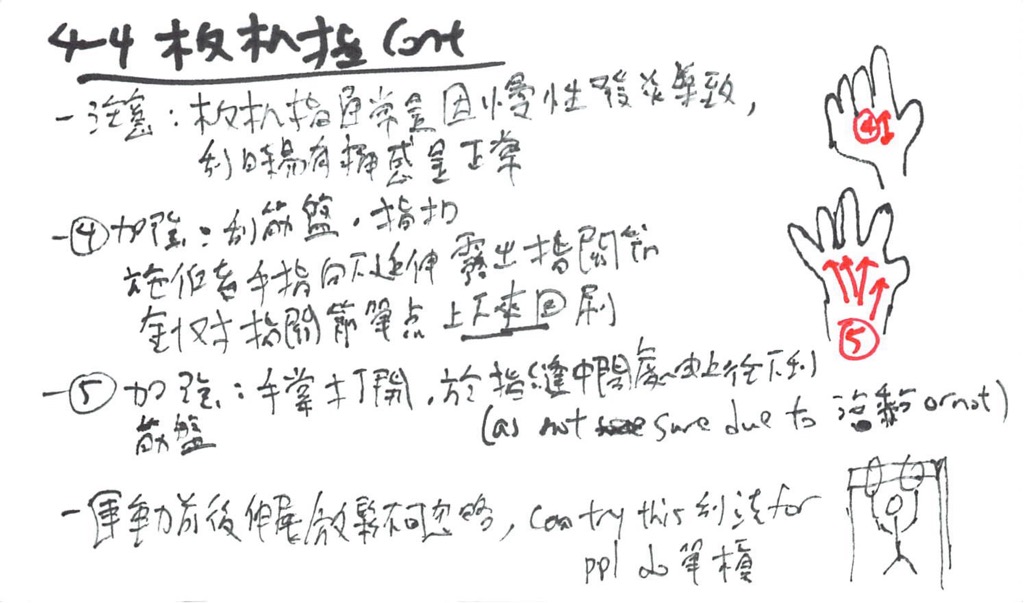 4-4 板机指 Cont
- 注意：板机指通常是因慢性發炎導致，
刮時易有痛感是正常
④
- ④ 加強：刮筋盤，指扣
施作者手指向下延伸 露出指關節
針對指關節單点上下來回刷
⑤
- ⑤ 加強：手掌打開，於指縫中間處由上往下刮
筋盤
(as not sure due to or not)
- 運動前後伸展放鬆不可忽略, can try this 刮法 for
ppl do 單槓